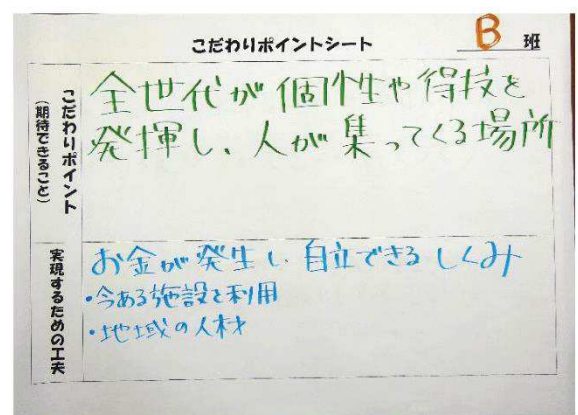 こだわりポイントシート
B 班
こだわりポイント
(期待できること)
全世代が個性や得技を
発揮し、人が集ってくる場所
実現するための工夫
お金が発生し、自立できるしくみ
・今ある施設を利用
・地域の人材